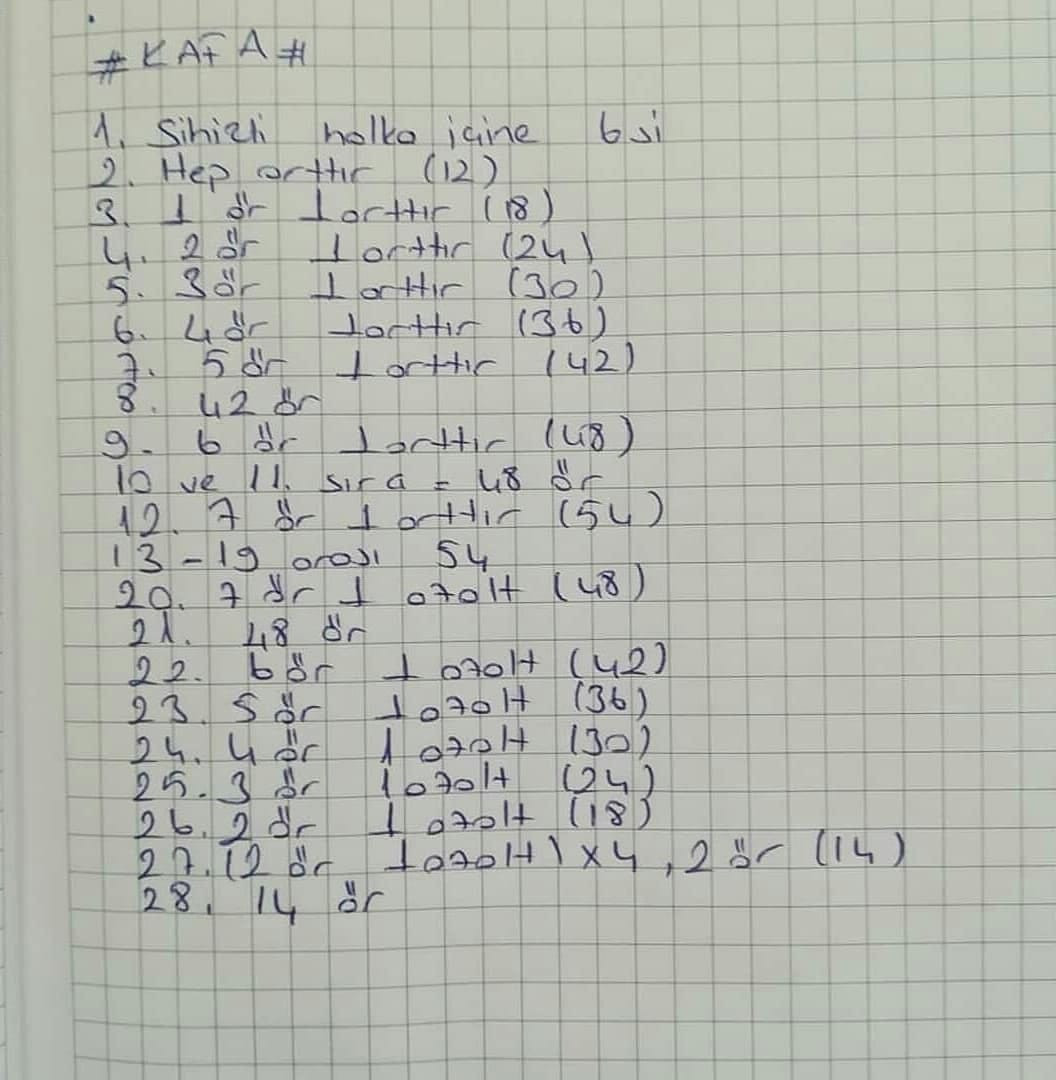 #KAFA#
1. Sihirli halka içine 6 si
2. Hep arttır (12)
3. 1 ör 1 arttır (18)
4. 2 ör 1 arttır (24)
5. 3 ör 1 arttır (30)
6. 4 ör 1 arttır (36)
7. 5 ör 1 arttır (42)
8. 42 ör
9. 6 ör 1 arttır (48)
10 ve 11. sıra = 48 ör
12. 7 ör 1 arttır (54)
13-19 arası 54
20. 7 ör 1 azalt (48)
21. 48 ör
22. 6 ör 1 azalt (42)
23. 5 ör 1 azalt (36)
24. 4 ör 1 azalt (30)
25. 3 ör 1 azalt (24)
26. 2 ör 1 azalt (18)
27. (2 ör 1 azalt) x4, 2 ör (14)
28. 14 ör